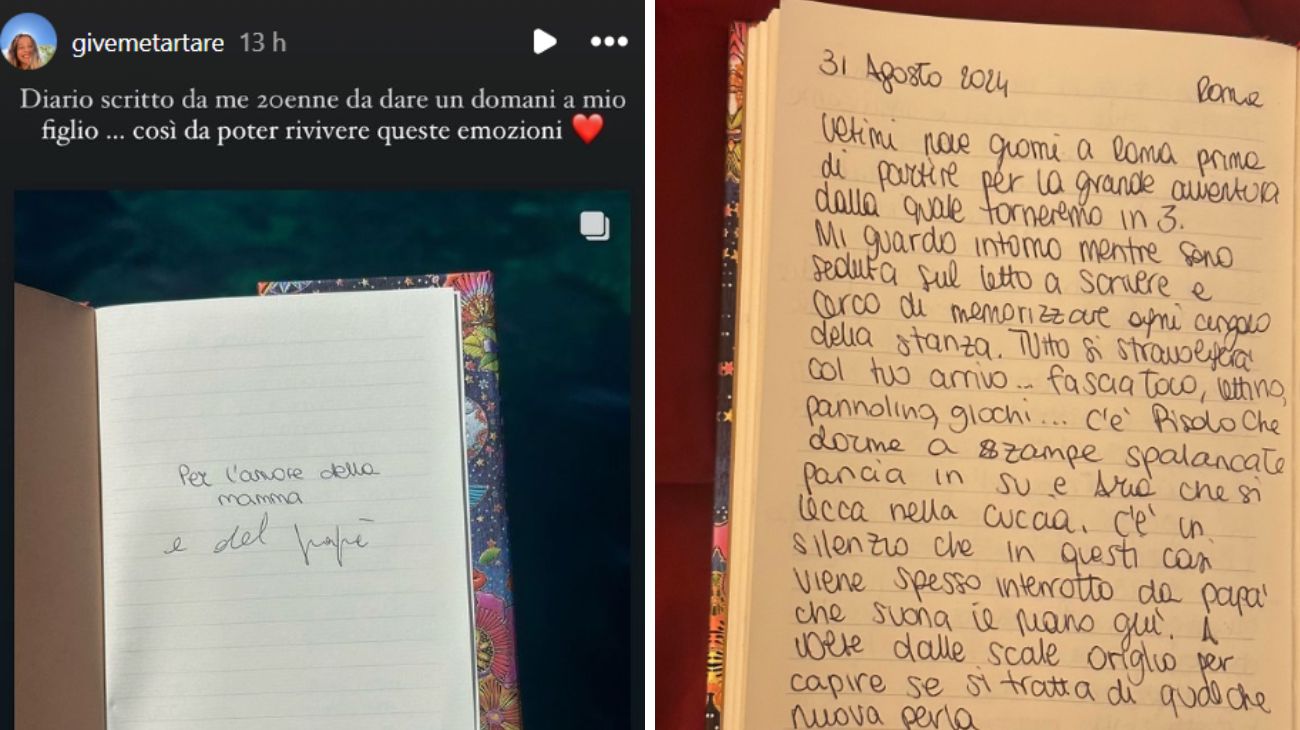 givemetartare 13 h
Diario scritto da me 20enne da dare un domani a mio
figlio ... così da poter rivivere queste emozioni ❤️
Per l'amore della
mamma
e del papà
31 Agosto 2024 Roma
Ultimi nove giorni a Roma prima
di partire per la grande avventura
dalla quale torneremo in 3.
Mi guardo intorno mentre sono
seduta sul letto a scrivere e
cerco di memorizzare ogni angolo
della stanza. Tutto si stravolgerà
col tuo arrivo... fasciatoio, lettino,
pannolino, giochi... c'è Risolo che
dorme a zampe spalancate
pancia in su e Aria che si
lecca nella cuccia. C'è un
silenzio che in questi casi
viene spesso interrotto da papà
che suona il piano giù. A
volte dalle scale origlio per
capire se si tratta di qualche
nuova perla